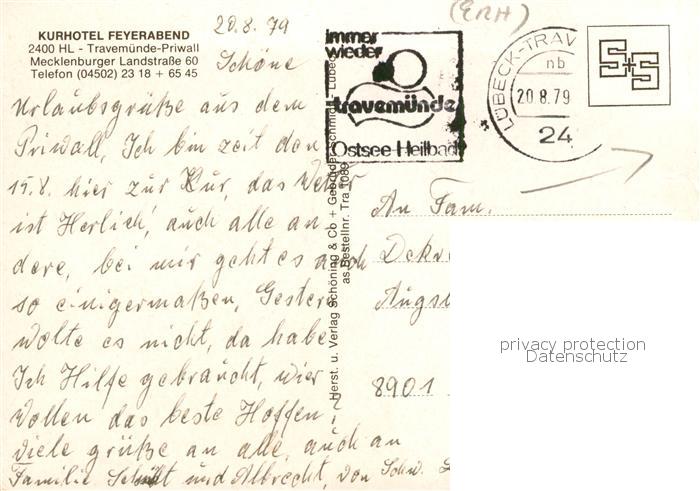 KURHOTEL FEYERABEND
2400 HL - Travemünde-Priwall
Mecklenburger Landstraße 60
Telefon (04502) 23 18 + 65 45
20.8.79
(ERH)
immer
wieder
travemünde
Ostsee Heilbad
LÜBECK-TRAV
nb
20.8.79
24
Schöne
Urlaubsgrüße aus dem
Priwall, Ich bin zeit den
15.8. hier zur Kur, das Wetter
ist Herlich, auch alle an
dere, bei mir geht es auch
so einigermaßen, Gestern
wolte es nicht, da habe
Ich Hilfe gebraucht, wier
wollen das beste Hoffen,
viele grüße an alle, auch an
Familie und Albrecht, von Schw.
Herst. u. Verlag Schöning & Co + Gebrüder Schmidt - Lübeck
as Bestellnr. Tra 1089
An Fam.
Dekr
Augs
8901
privacy protection
Datenschutz